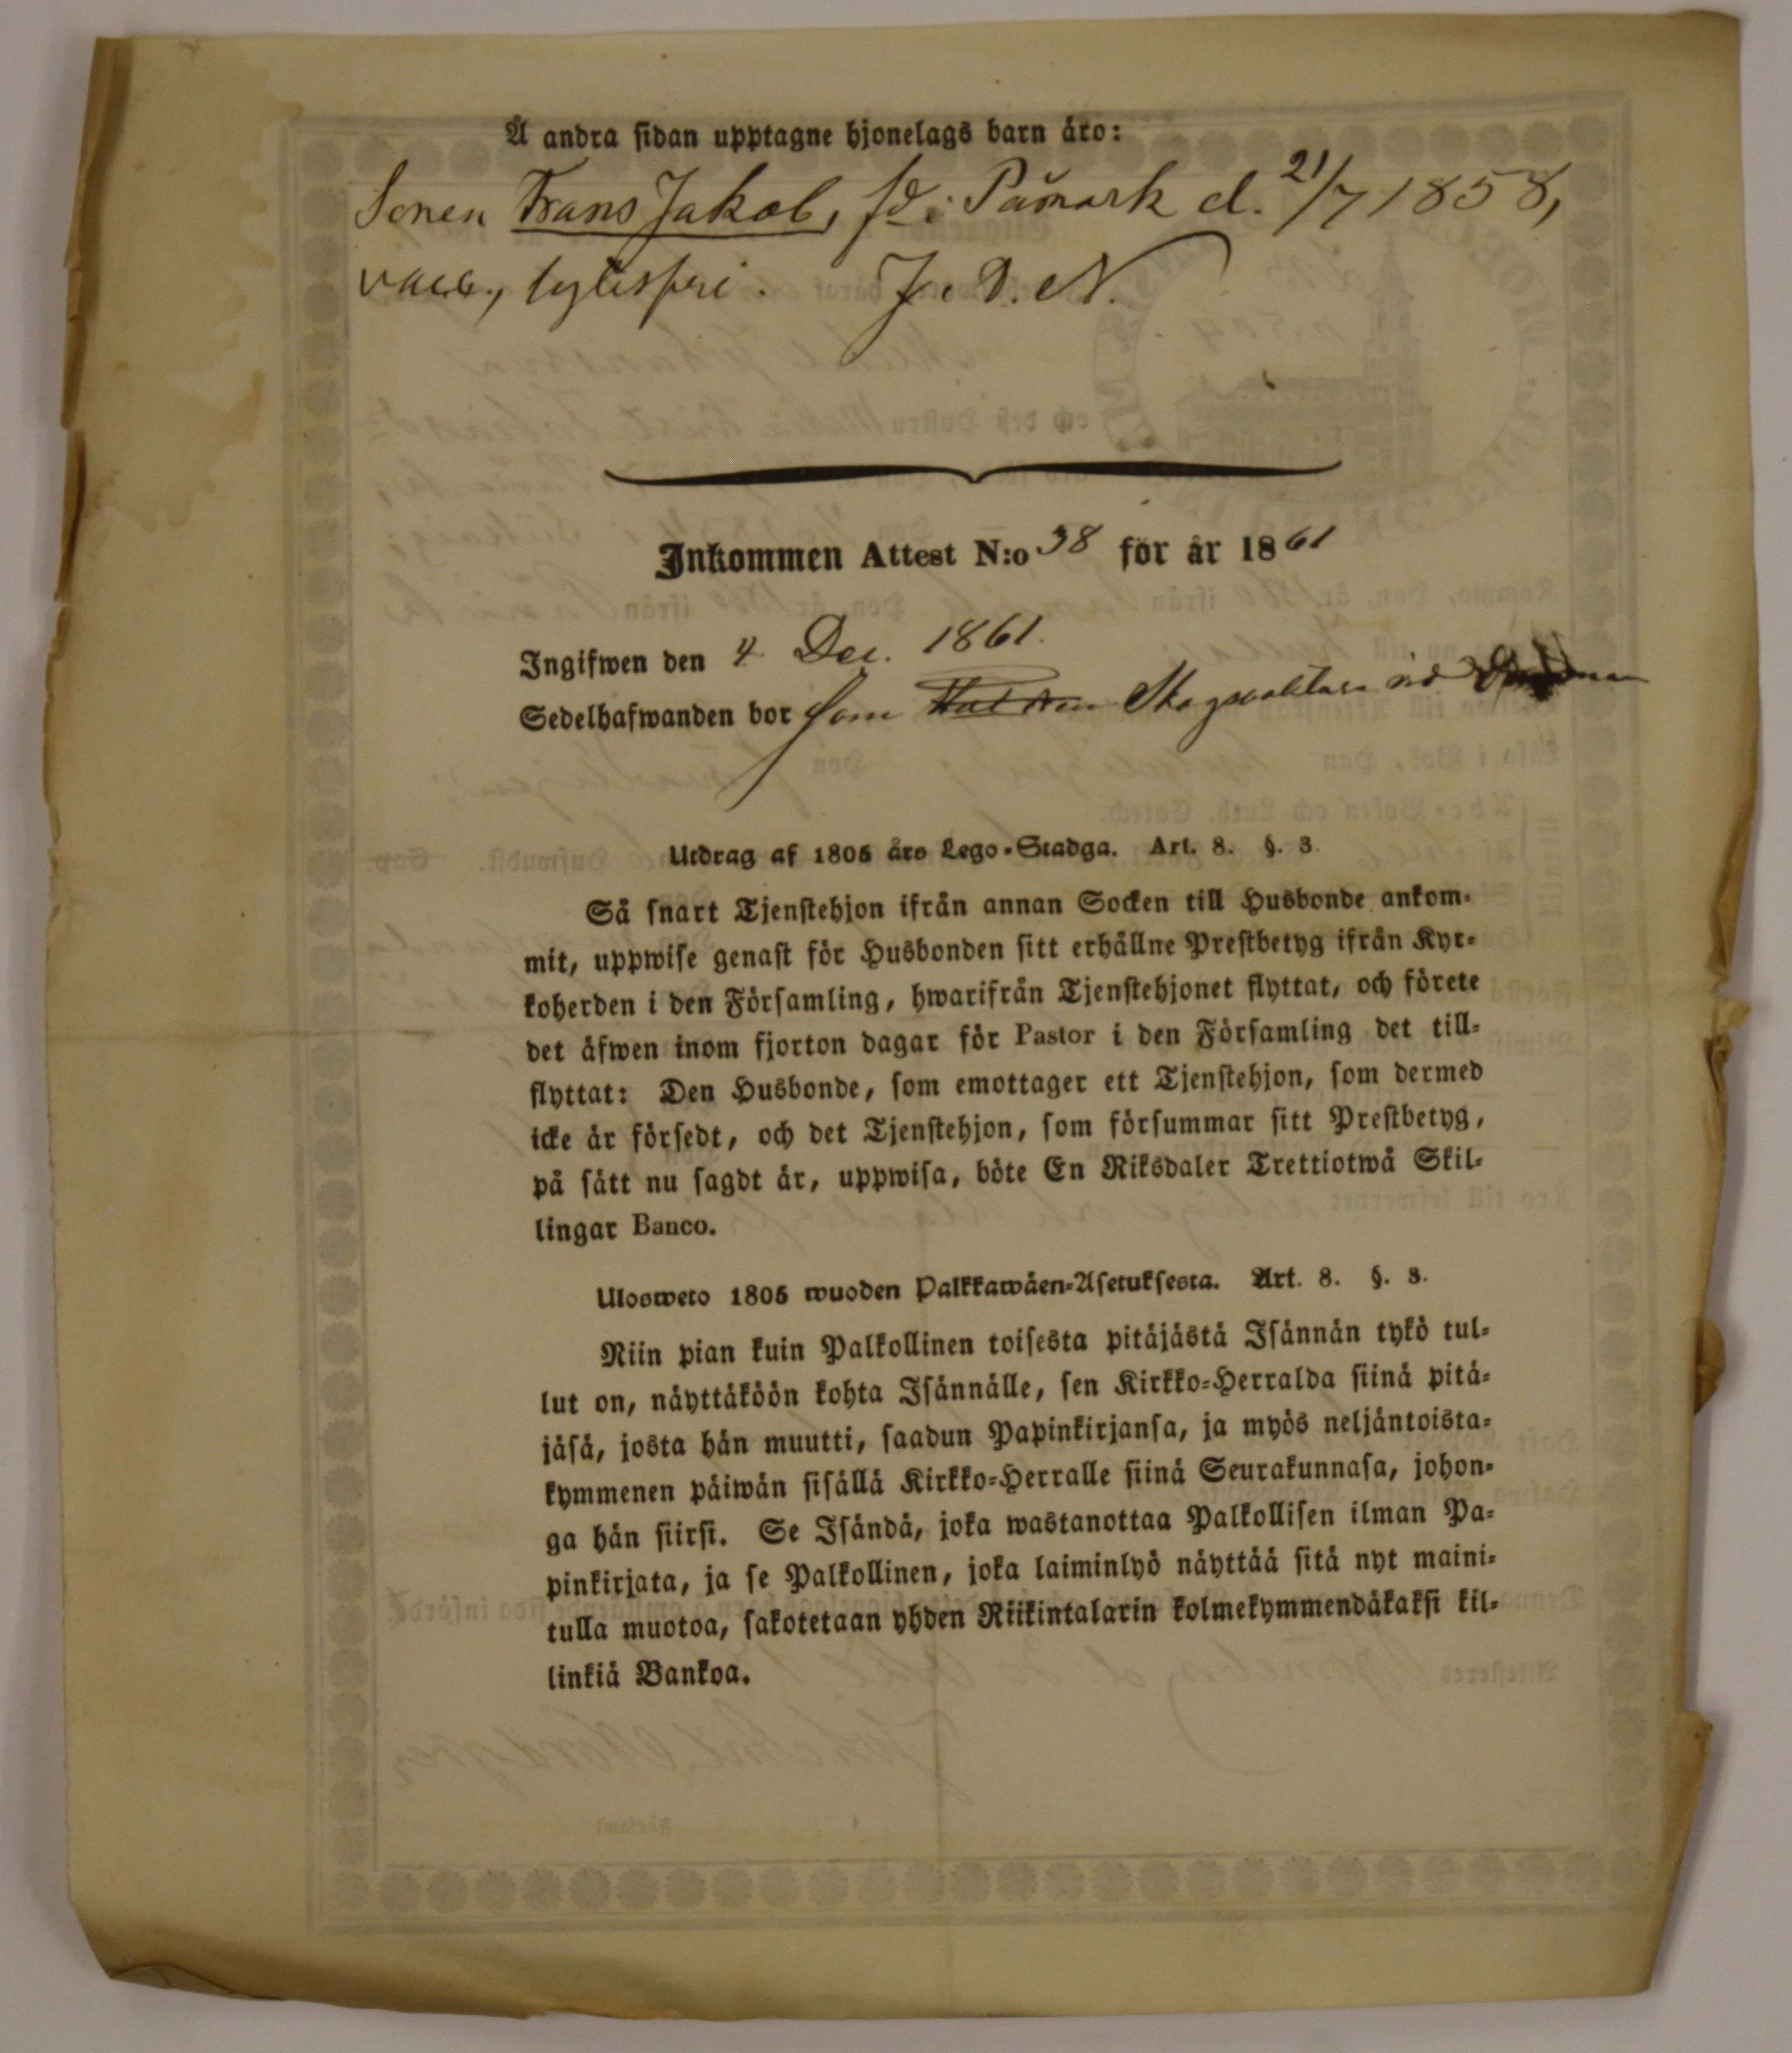 Å andra sidan upptagne hjonelags barn äro:
Sonen Frans Jakob, fd. i Påmark d. 21/7 1858,
vacc., lytesfri. J. D. N.
Inkommen Attest N:o 38 för år 1861
Ingifwen den 4 Dec. 1861.
Sedelhafwanden bor som Skogvaktare vid
Utdrag af 1805 års Lego-Stadga. Art. 8. §. 3.
Så snart Tjenstehjon ifrån annan Socken till Husbonde ankom-
mit, uppwise genast för Husbonden sitt erhållne Prestbetyg ifrån Kyr-
koherden i den Församling, hwarifrån Tjenstehjonet flyttat, och förete
det äfwen inom fjorton dagar för Pastor i den Församling det till-
flyttat: Den Husbonde, som emottager ett Tjenstehjon, som dermed
icke är försedt, och det Tjenstehjon, som försummar sitt Prestbetyg,
på sätt nu sagdt är, uppwisa, böte En Riksdaler Trettiotwå Skil-
lingar Banco.
Ulosweto 1805 wuoden Palkkawäen-Asetuksesta. Art. 8. §. 3.
Niin pian kuin Palkollinen toisesta pitäjästä Isännän tykö tul-
lut on, näyttäköön kohta Isännälle, sen Kirkko-Herralda siinä pitä-
jäsä, josta hän muutti, saadun Papinkirjansa, ja myös neljäntoista-
kymmenen päiwän sisällä Kirkko-Herralle siinä Seurakunnasa, johon-
ga hän siirsi. Se Isändä, joka wastanottaa Palkollisen ilman Pa-
pinkirjata, ja se Palkollinen, joka laiminlyö näyttää sitä nyt maini-
tulla muotoa, sakotetaan yhden Riikintalarin kolmekymmendäkaksi kil-
linkiä Bankoa.